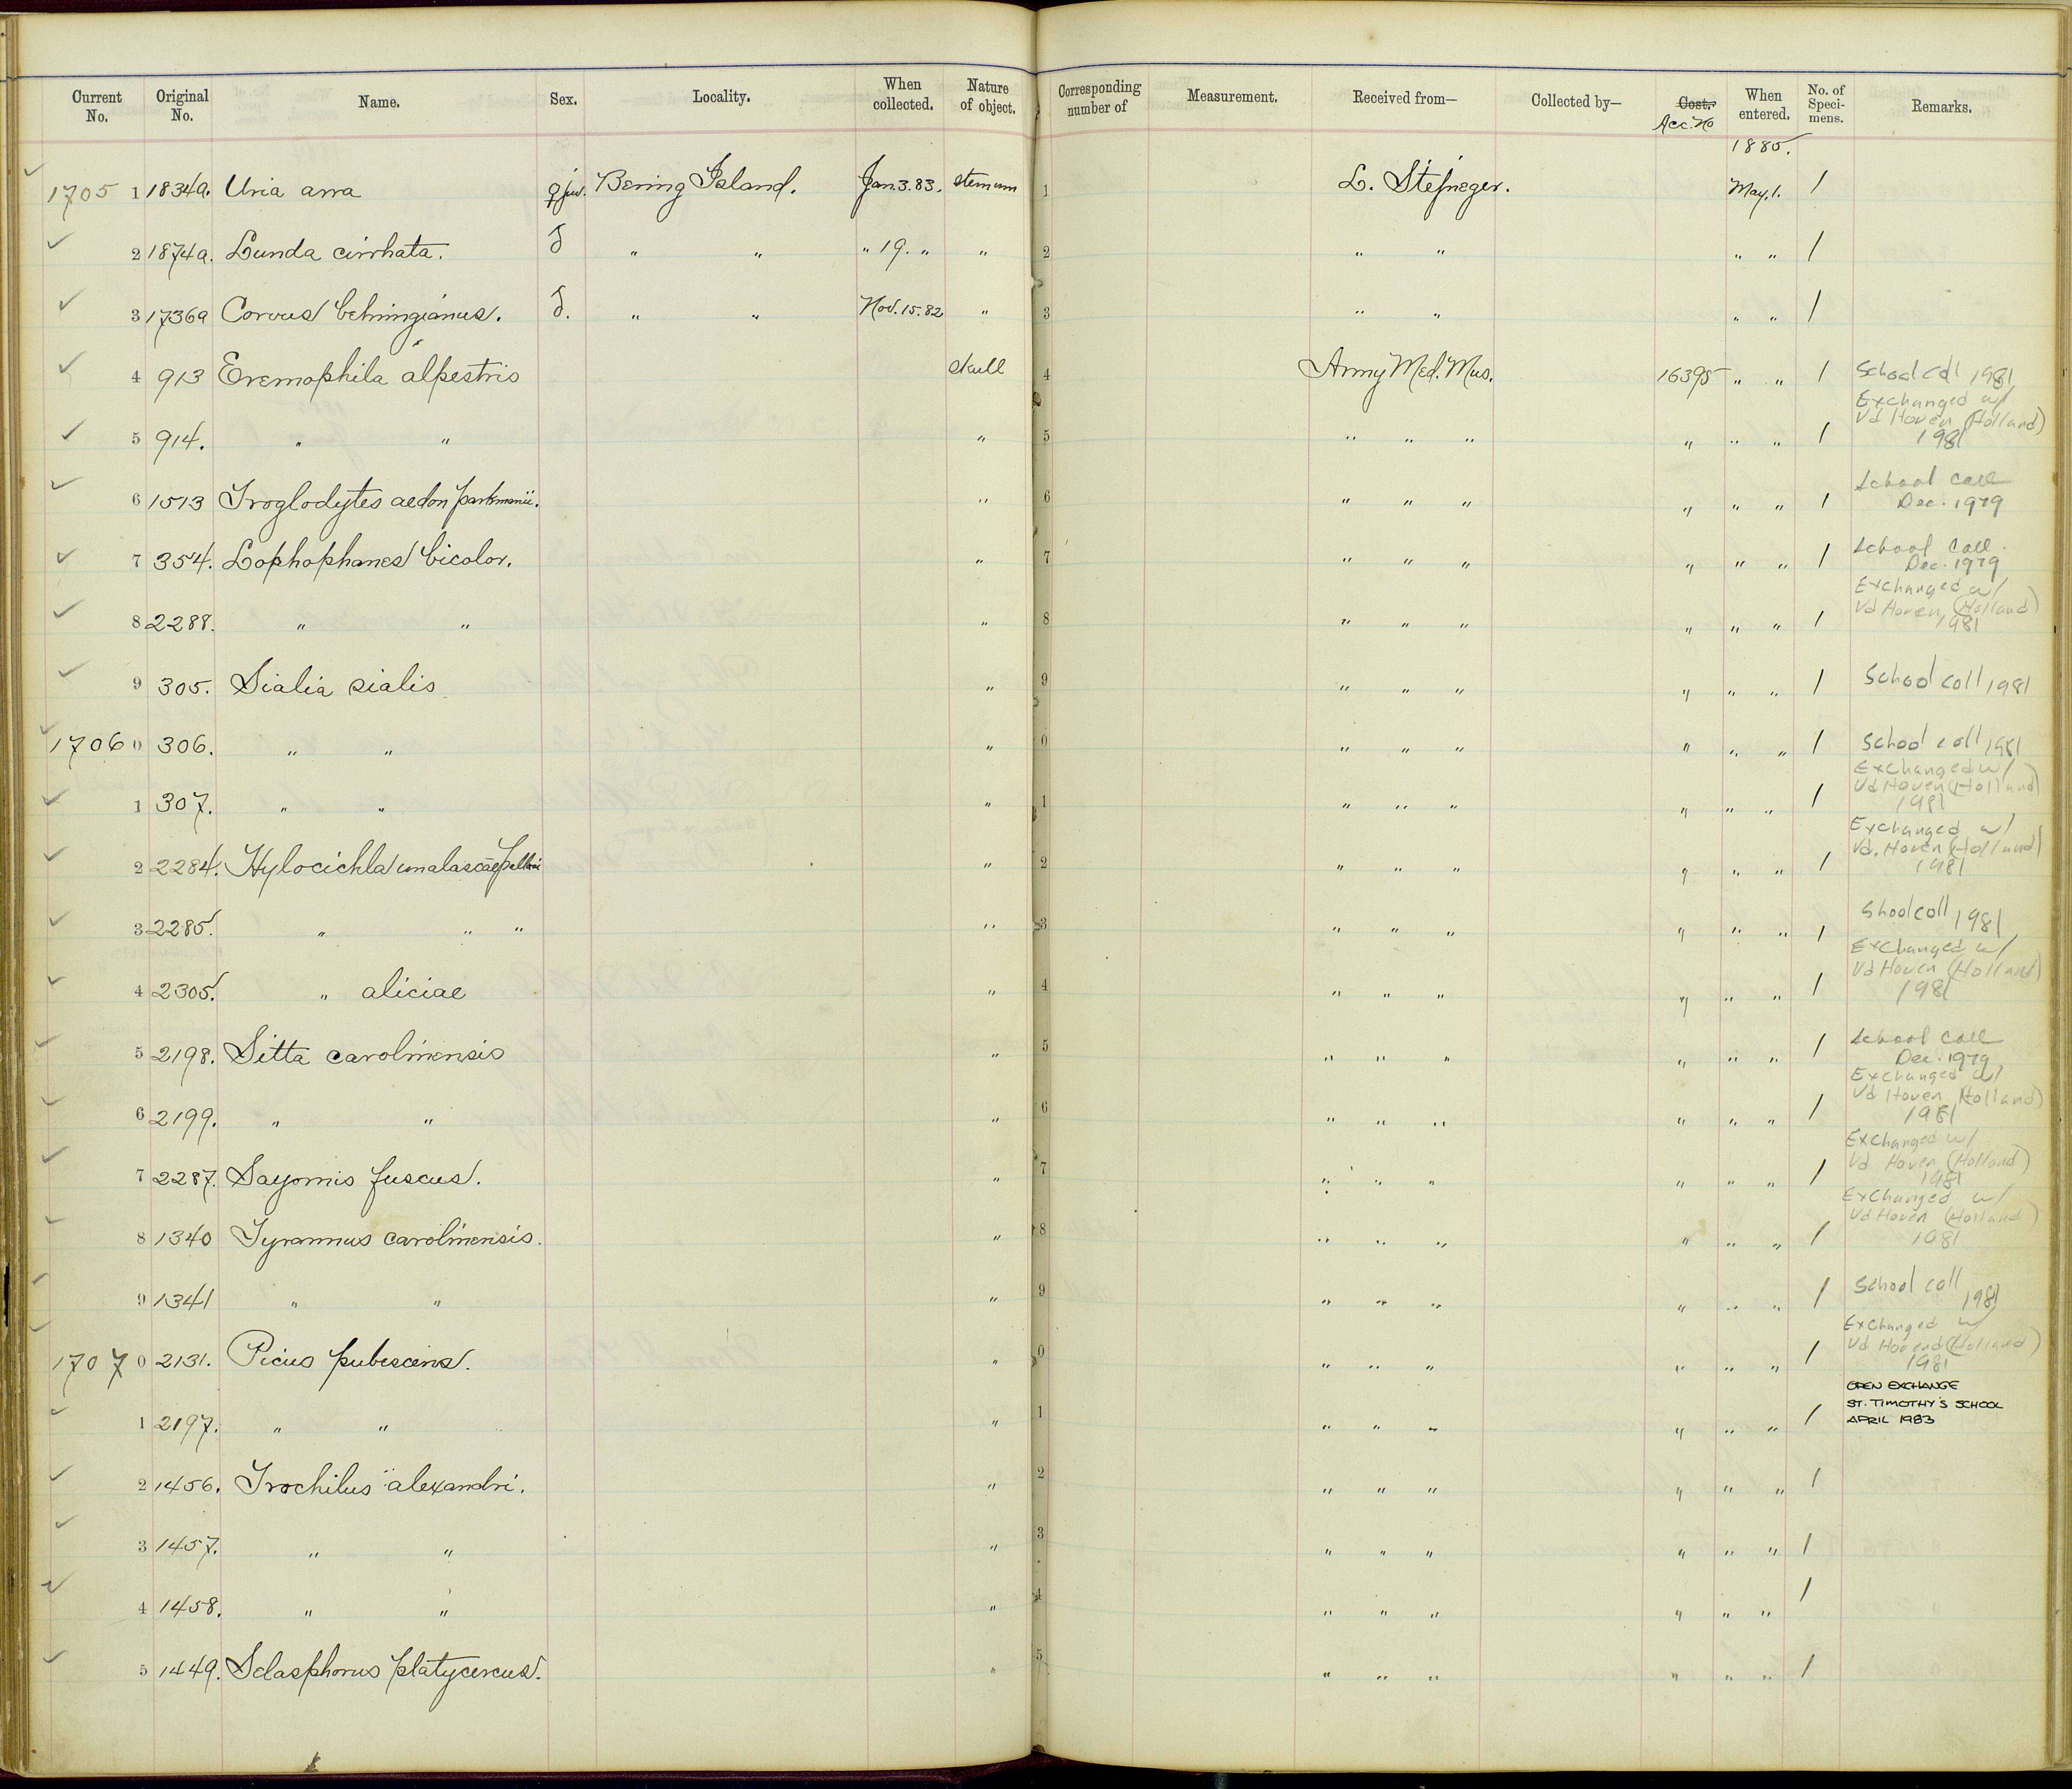 Current No. Original No. Name. Sex. Locality. When collected. Nature of object. Corresponding number of Measurement. Received from— Collected by— Cost. Acc. No When entered. No. of Specimens. Remarks.
1885.
1705 1 1834a. Uria arra ♀ juv. Bering Island. Jan. 3. 83. sternum 1 L. Stejneger. May, 1. 1
2 1874a. Lunda cirrhata. ♂ " " " 19. " " 2 " " " " 1
3 1736a Corvus behringianus. ♂. " " Nov. 15. 82 " 3 " " " " 1
4 913 Eremophila alpestris skull 4 Army Med. Mus. 16395 " " 1 School coll 1981
5 914. " " " 5 " " " " " " 1 Exchanged w/ Vd Hoven (Holland) 1981
6 1513 Troglodytes aedon parkmanii. " 6 " " " " " " 1 School Coll Dec. 1979
7 354. Lophophanes bicolor. " 7 " " " " " " 1 School Coll. Dec. 1979
8 2288. " " " 8 " " " " " " 1 Exchanged w/ Vd Hoven, (Holland) 1981
9 305. Sialia sialis " 9 " " " " " " 1 School coll 1981
1706 0 306. " " " 0 " " " " " " 1 School coll 1981
1 307. " " " 1 " " " " " " 1 Exchanged w/ Vd Hoven (Holland) 1981
2 2284. Hylocichla unalascae pallasi " 2 " " " " " " 1 Exchanged w/ Vd. Hoven (Holland) 1981
3 2285. " " " " 3 " " " " " " 1 Shool coll 1981
4 2305. " aliciae " 4 " " " " " " 1 Exchanged w/ Vd Hoven (Holland) 1981
5 2198. Sitta carolinensis " 5 " " " " " " 1 School Coll Dec. 1979
6 2199. " " " 6 " " " " " " 1 Exchanged w/ Vd Hoven (Holland) 1981
7 2287. Sayornis fuscus. " 7 " " " " " " 1 Exchanged w/ Vd Hoven (Holland) 1981
8 1340 Tyrannus carolinensis. " 8 " " " " " " 1 Exchanged w/ Vd Hoven (Holland) 1981
9 1341 " " " 9 " " " " " " 1 School coll 1981
1707 0 2131. Picus pubescens. " 0 " " " " " " 1 Exchanged w/ Vd Hoven (Holland) 1981
1 2197. " " " 1 " " " " " " 1 OPEN EXCHANGE ST. TIMOTHY'S SCHOOL APRIL 1983
2 1456. Trochilus alexandri. " 2 " " " " " " 1
3 1457. " " " 3 " " " " " " 1
4 1458. " " " 4 " " " " " " 1
5 1449. Selasphorus platycercus. " 5 " " " " " " 1